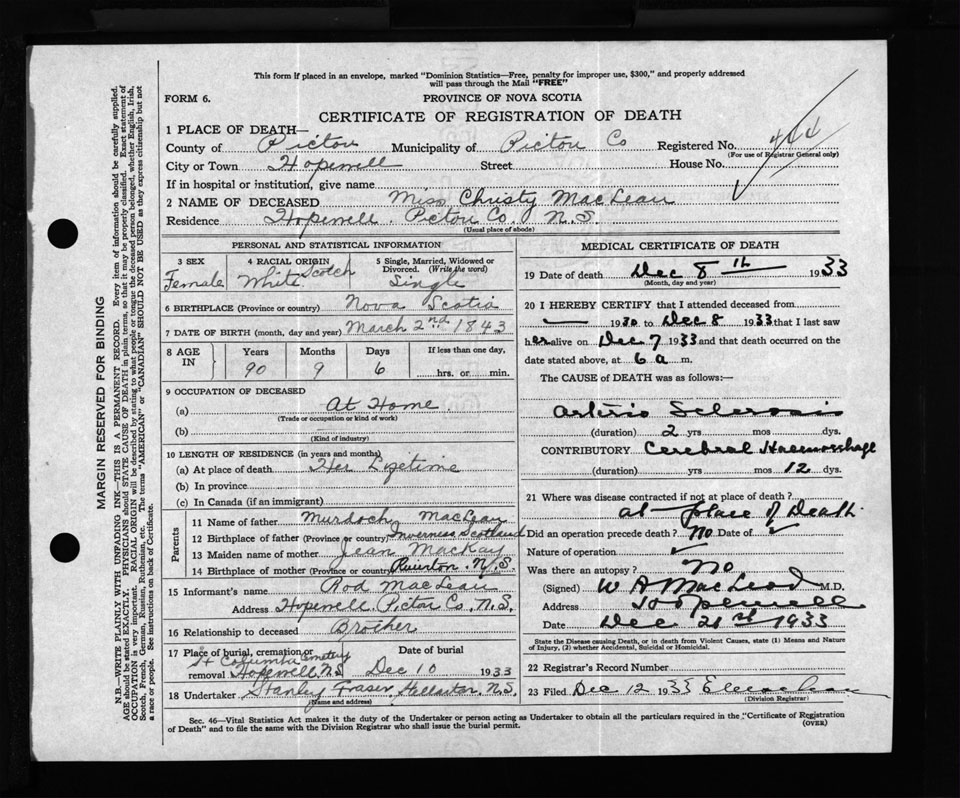 This form if placed in an envelope, marked "Dominion Statistics—Free, penalty for improper use, $300," and properly addressed
will pass through the Mail "FREE"
FORM 6.
PROVINCE OF NOVA SCOTIA
CERTIFICATE OF REGISTRATION OF DEATH
1 PLACE OF DEATH—
County of Pictou Municipality of Pictou Co Registered No. 444
(For use of Registrar General only)
City or Town Hopewell Street House No.
If in hospital or institution, give name
2 NAME OF DECEASED Miss Christy MacLean
Residence Hopewell. Pictou Co. N.S
(Usual place of abode)
PERSONAL AND STATISTICAL INFORMATION
3 SEX Female
4 RACIAL ORIGIN White Scotch
5 Single, Married, Widowed or
Divorced. (Write the word)
Single
6 BIRTHPLACE (Province or country) Nova Scotia
7 DATE OF BIRTH (month, day and year) March 2nd 1843
8 AGE IN
Years Months Days If less than one day,
90 9 6 hrs. or min.
9 OCCUPATION OF DECEASED
(a) At Home.
(Trade or occupation or kind of work)
(b)
(Kind of industry)
10 LENGTH OF RESIDENCE (in years and months)
(a) At place of death Her Lifetime
(b) In province
(c) In Canada (if an immigrant)
Parents
11 Name of father Murdoch MacLean
12 Birthplace of father (Province or country) Inverness Scotland
13 Maiden name of mother Jean MacKay
14 Birthplace of mother (Province or country) N.S.
15 Informant's name Rod MacLean
Address Hopewell. Pictou Co. N.S.
16 Relationship to deceased Brother
17 Place of burial, cremation or removal Date of burial
St Columba Cemetery
Hopewell, N.S Dec 10 1933
18 Undertaker Stanley Fraser, Stellarton, N.S.
(Name and address)
MEDICAL CERTIFICATE OF DEATH
19 Date of death Dec 8 th 1933
(Month, day and year)
20 I HEREBY CERTIFY that I attended deceased from
— 1930 to Dec 8 1933 that I last saw
her alive on Dec 7 1933 and that death occurred on the
date stated above, at 6 a m.
The CAUSE of DEATH was as follows:—
Arterio Sclerosis
(duration) 2 yrs mos dys.
CONTRIBUTORY Cerebral Haemorrhage
(duration) yrs mos 12 dys.
21 Where was disease contracted if not at place of death?
at place of Death.
Did an operation precede death? No Date of
Nature of operation
Was there an autopsy? No
(Signed) W A MacLeod M.D.
Address Hopewell
Date Dec 21st 1933
State the Disease causing Death, or in death from Violent Causes, state (1) Means and Nature
of Injury, (2) whether Accidental, Suicidal or Homicidal.
22 Registrar's Record Number
23 Filed Dec 12 1933
(Division Registrar)
Sec. 46—Vital Statistics Act makes it the duty of the Undertaker or person acting as Undertaker to obtain all the particulars required in the "Certificate of Registration
of Death" and to file the same with the Division Registrar who shall issue the burial permit.
(OVER)
MARGIN RESERVED FOR BINDING
N.B.—WRITE PLAINLY WITH UNFADING INK—THIS IS A PERMANENT RECORD. Every item of information should be carefully supplied.
AGE should be stated EXACTLY. PHYSICIANS should STATE CAUSE OF DEATH in plain terms, so that it may be properly classified. Exact statement of
OCCUPATION is very important. RACIAL ORIGIN will be described by stating to what people or tongue the deceased person belonged, whether English, Irish,
Scotch, French, German, Russian, Ruthenian, etc. The terms "AMERICAN" or "CANADIAN" SHOULD NOT BE USED as they express citizenship but not
a race or people. See instructions on back of Certificate.